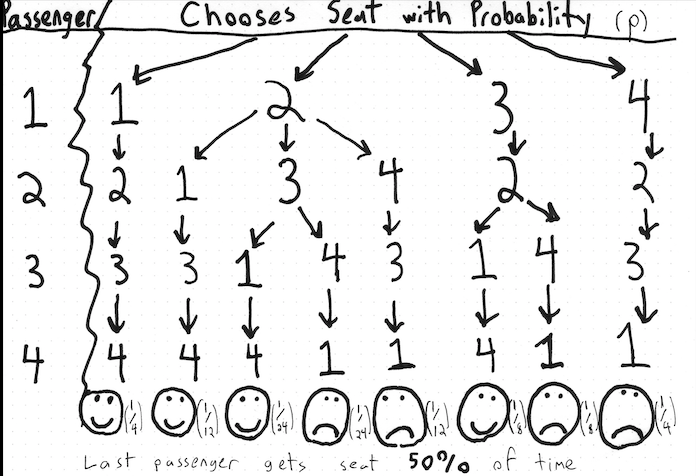 Passenger Chooses Seat with Probability (p)
1 1 2 3 4
2 2 1 3 4 2 2
3 3 3 1 4 3 1 4 3
4 4 4 4 1 1 4 1 1
(1/4) (1/12) (1/24) (1/24) (1/12) (1/8) (1/8) (1/4)
Last passenger gets seat 50% of time